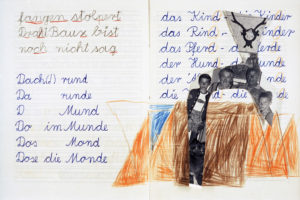 fangen stolpert
bist
noch nicht sag
Dach(s) rund
Da runde
D Mund
Do im Munde
Das Mond
Dose die Monde
das Kind - die Kinder
das Rind - inder
das Pferd - d erde
der Hund - d unde
der
die